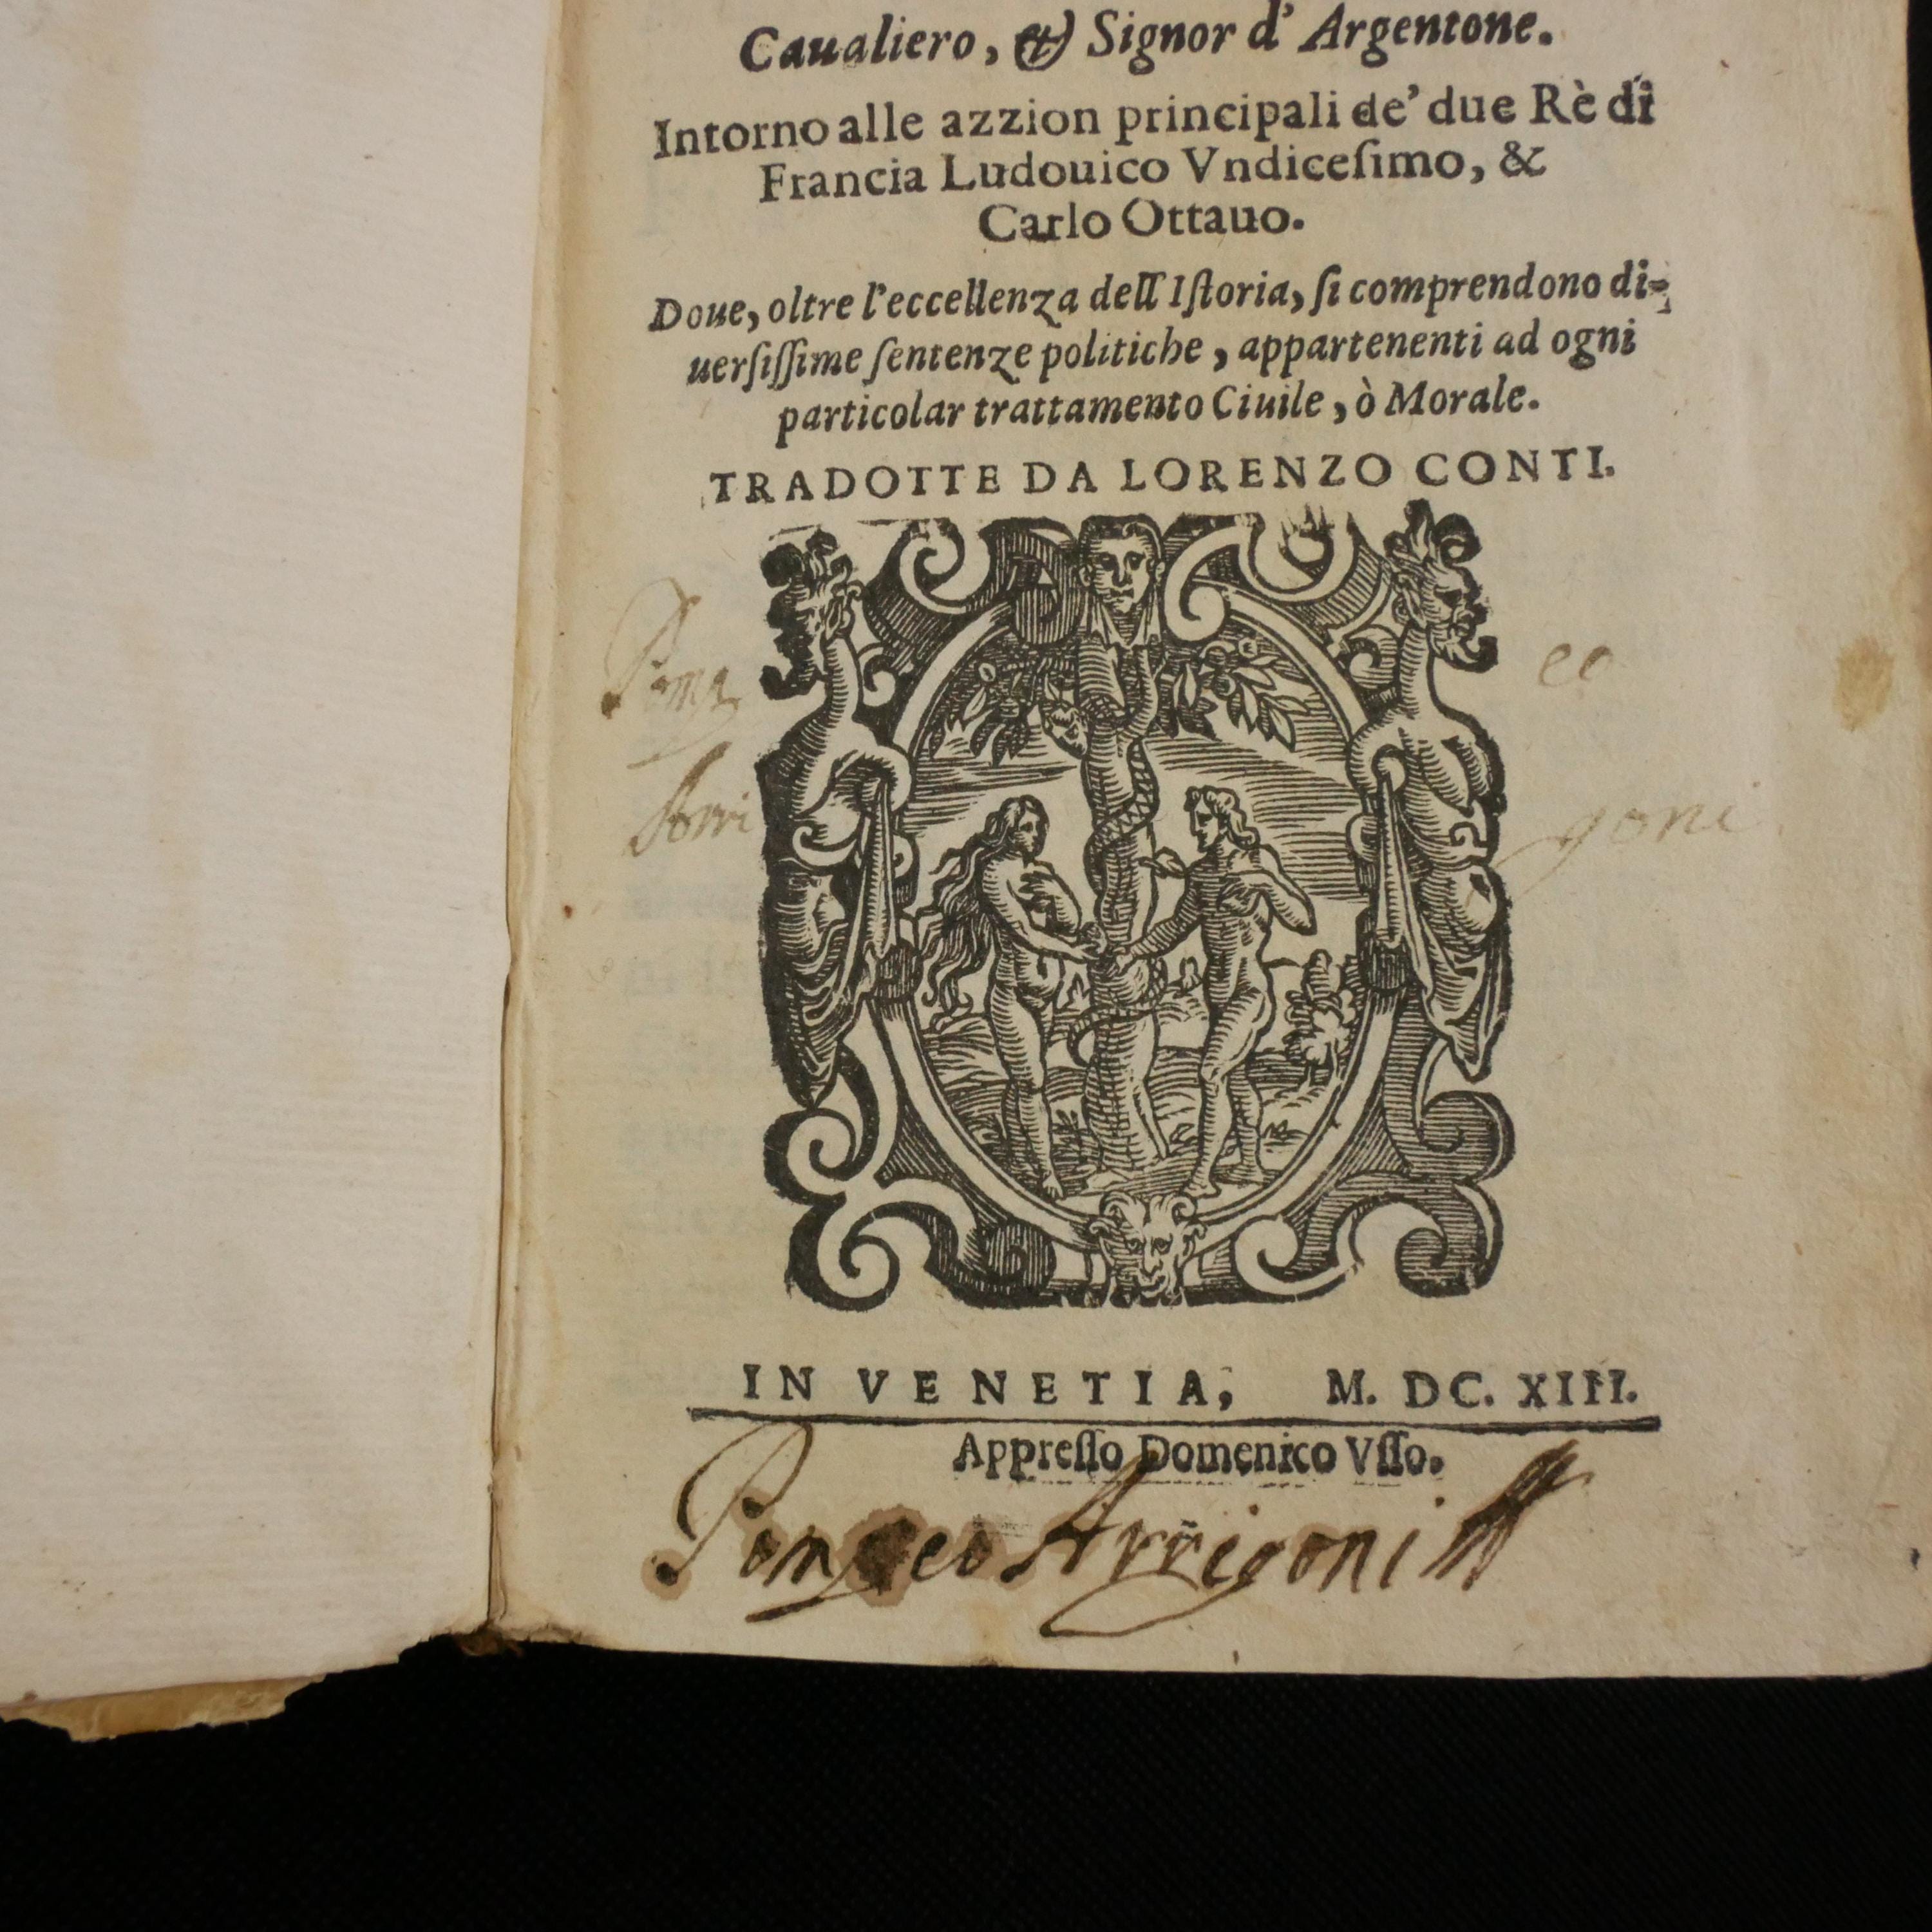 Caualiero, & Signor d' Argentone.
Intorno alle azzion principali de' due Rè di
Francia Ludouico Vndiceſimo, &
Carlo Ottauo.
Doue, oltre l'eccellenza dell' Iſtoria, ſi comprendono di-
uerſiſſime ſentenze politiche, appartenenti ad ogni
particolar trattamento Ciuile, ò Morale.
TRADOTTE DA LORENZO CONTI.
Pomp eo
Arri goni
IN VENETIA, M. DC. XIII.
Appreſſo Domenico Vſſo.
Pompeo Arrigoni